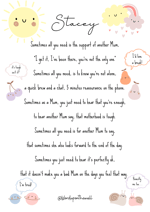 Stacey
Sometimes all you need is the support of another Mum.
"I get it, I've been there, you're not the only one"
Sometimes all you need, is to know you're not alone,
a quick brew and a chat, 5 minutes reassurance on the phone.
Sometimes as a Mum, you just need to hear that you're enough,
to hear another Mum say, that motherhood is tough.
Sometimes all you need is for another Mum to say,
that sometimes she also looks forward to the end of the day.
Sometimes you just need to hear it's perfectly ok,
that it doesn't make you a bad Mum on the days you feel that way.
I'm tired!